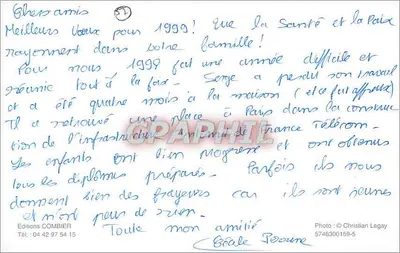 Chers amis
Meilleurs Vœux pour 1999! Que la Santé et la Paix
rayonnent dans votre famille!
Pour nous 1999 fut une année difficile et
réunie tout à la fois. Serge a perdu son travail
et a été quatre mois à la maison (et ce fut affreux)
Il a retrouvé une place à Paris dans la construc
tion de l'infrastructure France Télécom.
Les enfants ont bien progressé et ont obtenus
tous les diplômes préparés. Parfois ils nous
donnent bien des frayeurs car ils sont jeunes
et n'ont peur de rien.
Toute mon amitié
CPAPHIL
Editions COMBIER
Tél.: 04 42 97 54 15
Photo : © Christian Legay
5745300158-5